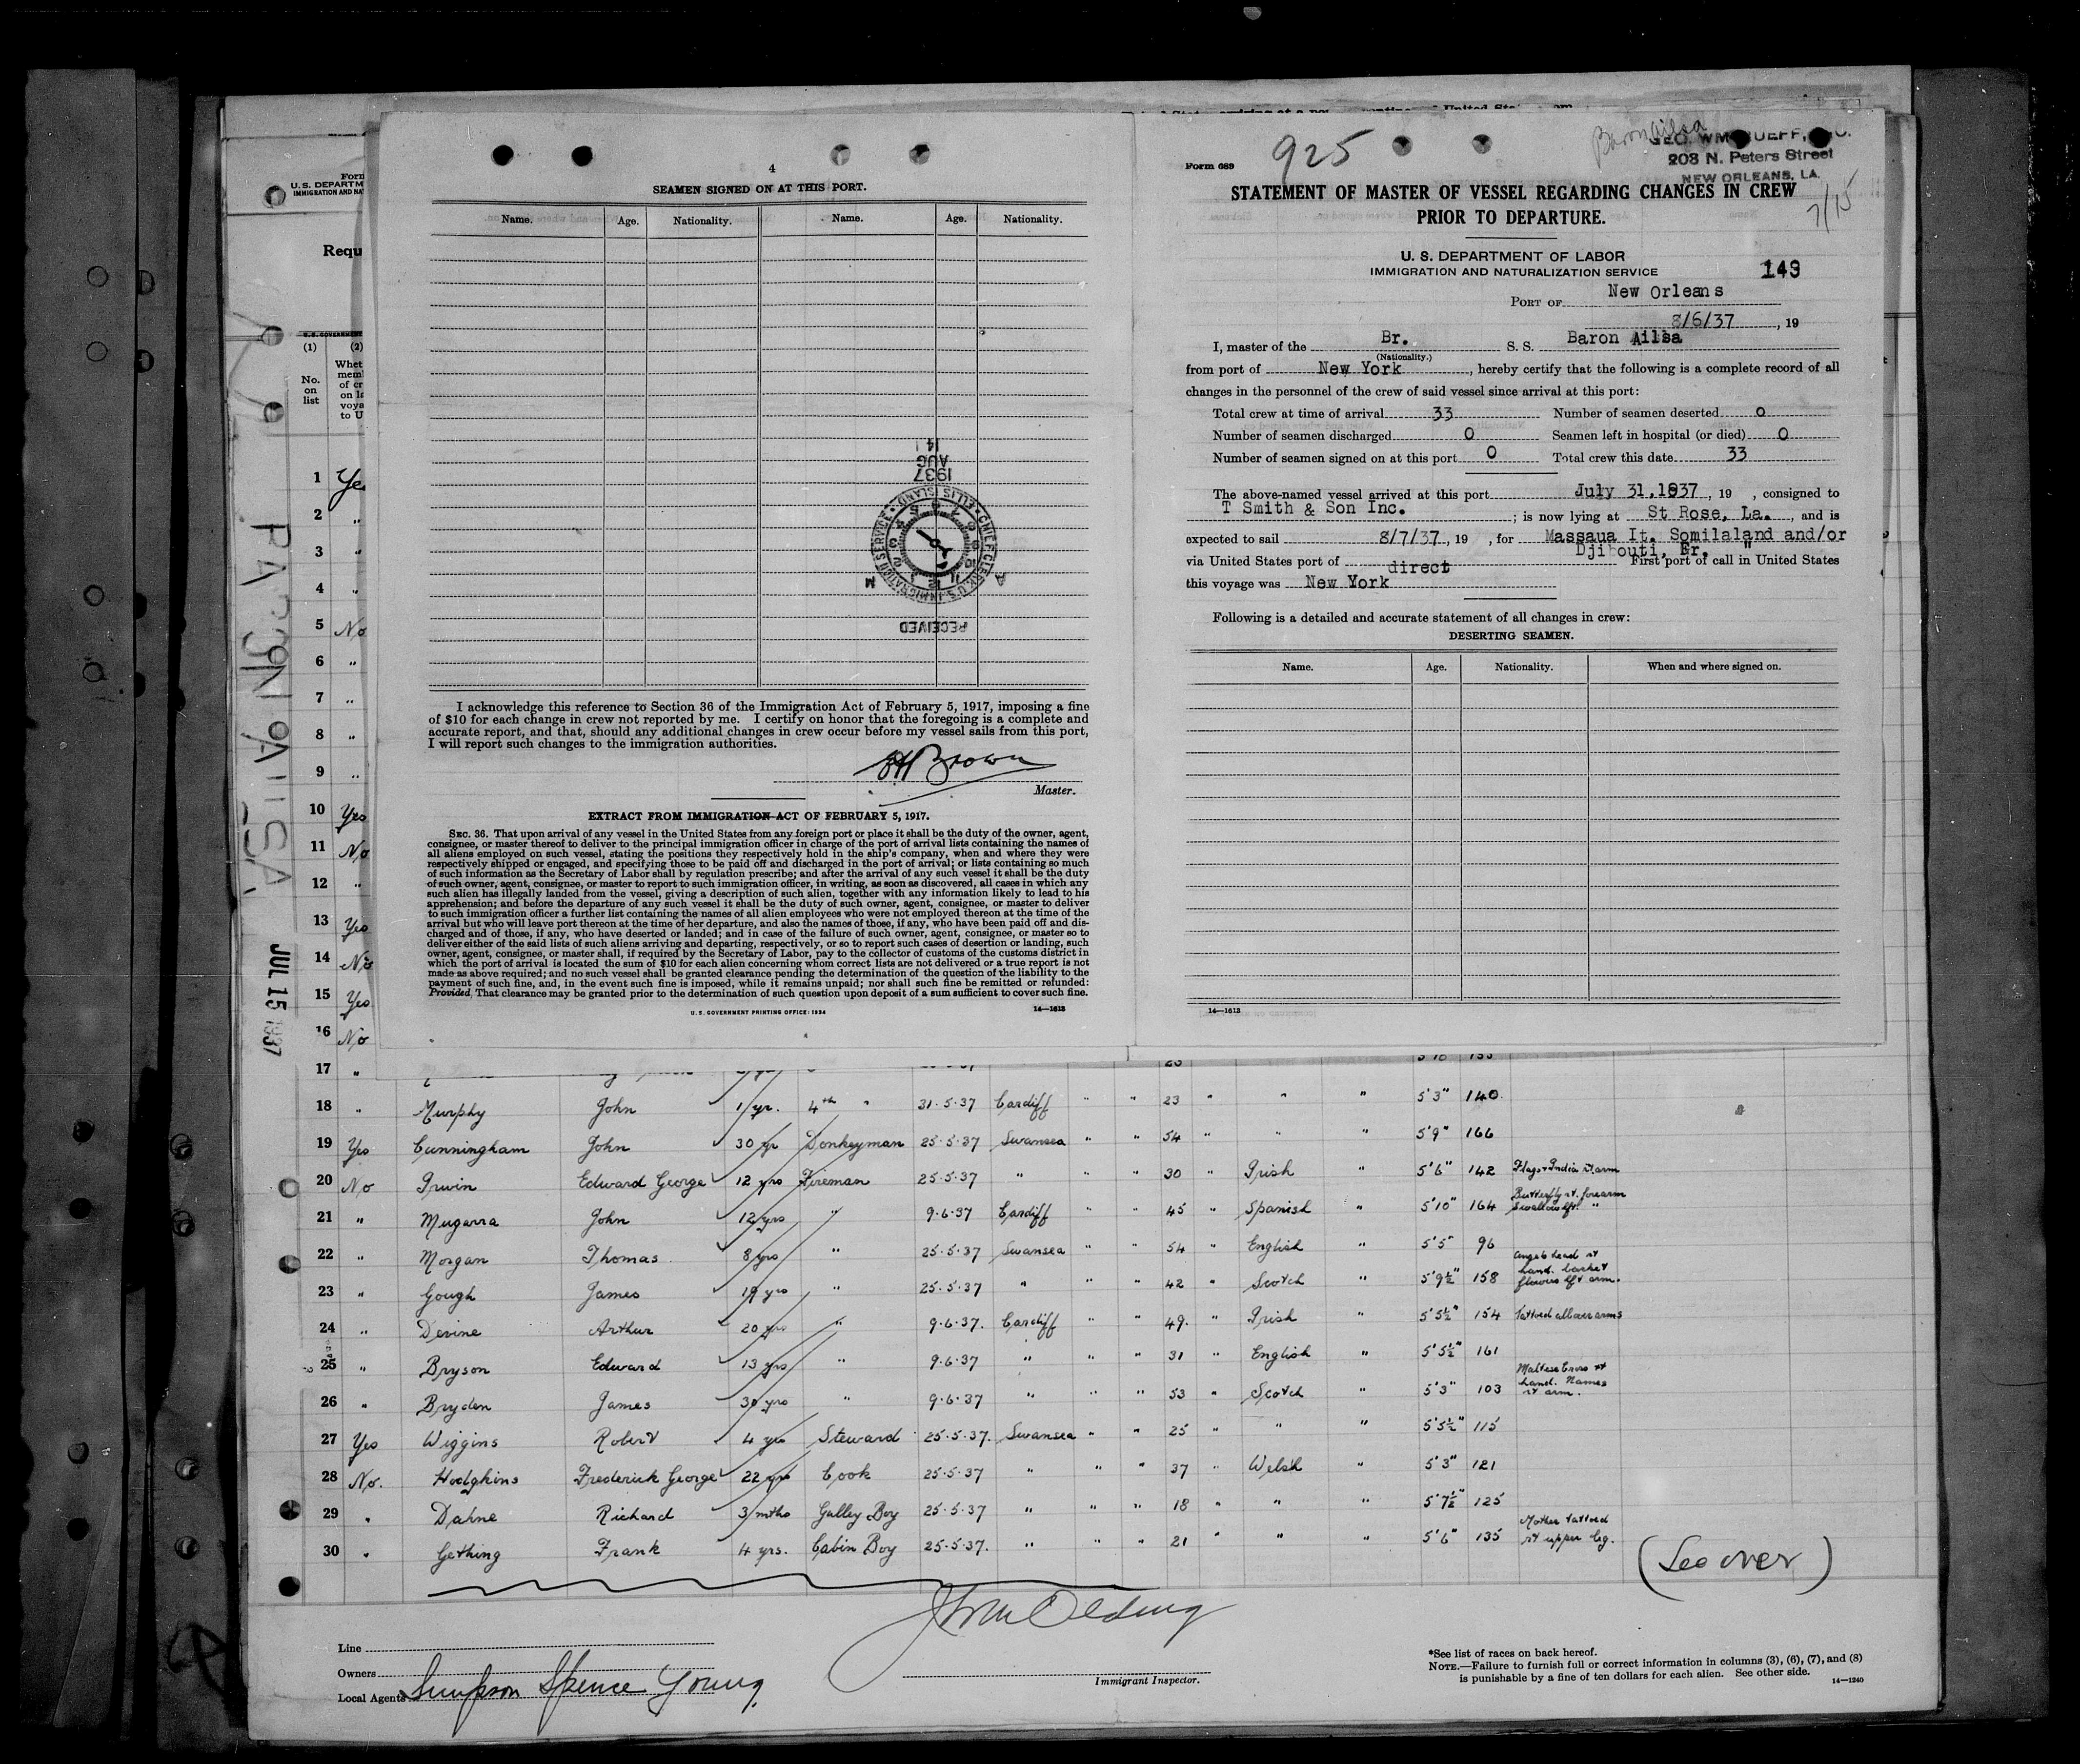 4
SEAMEN SIGNED ON AT THIS PORT.
Name. Age. Nationality. Name. Age. Nationality.
14
AUG
1937
CHIEF CLERK, U.S. IMMIGRATION SERVICE ELLIS ISLAND
RECEIVED
I acknowledge this reference to Section 36 of the Immigration Act of February 5, 1917, imposing a fine
of $10 for each change in crew not reported by me. I certify on honor that the foregoing is a complete and
accurate report, and that, should any additional changes in crew occur before my vessel sails from this port,
I will report such changes to the immigration authorities.
Brown
Master.
EXTRACT FROM IMMIGRATION ACT OF FEBRUARY 5, 1917.
SEC. 36. That upon arrival of any vessel in the United States from any foreign port or place it shall be the duty of the owner, agent,
consignee, or master thereof to deliver to the principal immigration officer in charge of the port of arrival lists containing the names of
all aliens employed on such vessel, stating the positions they respectively hold in the ship's company, when and where they were
respectively shipped or engaged, and specifying those to be paid off and discharged in the port of arrival; or lists containing so much
of such information as the Secretary of Labor shall by regulation prescribe; and after the arrival of any such vessel it shall be the duty
of such owner, agent, consignee, or master to report to such immigration officer, in writing, as soon as discovered, all cases in which any
such alien has illegally landed from the vessel, giving a description of such alien, together with any information likely to lead to his
apprehension; and before the departure of any such vessel it shall be the duty of such owner, agent, consignee, or master to deliver
to such immigration officer a further list containing the names of all alien employees who were not employed thereon at the time of the
arrival but who will leave port thereon at the time of her departure, and also the names of those, if any, who have been paid off and dis-
charged and of those, if any, who have deserted or landed; and in case of the failure of such owner, agent, consignee, or master so to
deliver either of the said lists of such aliens arriving and departing, respectively, or so to report such cases of desertion or landing, such
owner, agent, consignee, or master shall, if required by the Secretary of Labor, pay to the collector of customs of the customs district in
which the port of arrival is located the sum of $10 for each alien concerning whom correct lists are not delivered or a true report is not
made as above required; and no such vessel shall be granted clearance pending the determination of the question of the liability to the
payment of such fine, and, in the event such fine is imposed, while it remains unpaid; nor shall such fine be remitted or refunded:
Provided, That clearance may be granted prior to the determination of such question upon deposit of a sum sufficient to cover such fine.
U. S. GOVERNMENT PRINTING OFFICE: 1934 14—1613
Form 689
925
Baron Ailsa
208 N. Peters Street
NEW ORLEANS, LA.
7/15
STATEMENT OF MASTER OF VESSEL REGARDING CHANGES IN CREW
PRIOR TO DEPARTURE.
U. S. DEPARTMENT OF LABOR
IMMIGRATION AND NATURALIZATION SERVICE
149
PORT OF New Orleans
8/6/37, 19
I, master of the Br. S. S. Baron Ailsa
(Nationality.)
from port of New York, hereby certify that the following is a complete record of all
changes in the personnel of the crew of said vessel since arrival at this port:
Total crew at time of arrival 33 Number of seamen deserted 0
Number of seamen discharged 0 Seamen left in hospital (or died) 0
Number of seamen signed on at this port 0 Total crew this date 33
The above-named vessel arrived at this port July 31,1937, 19 , consigned to
T Smith & Son Inc. ; is now lying at St Rose, La. , and is
expected to sail 8/7/37, 19 , for Massaua It. Somilaland and/or
Djibouti, Fr. "
via United States port of direct First port of call in United States
this voyage was New York
Following is a detailed and accurate statement of all changes in crew:
DESERTING SEAMEN.
Name. Age. Nationality. When and where signed on.
14—1613
Form
U. S. DEPARTM
IMMIGRATION AND NA
Requ
U.S. GOVERNMENT
(1) (2)
No. on list
Whet
memb
of cr
on la
voya
to U
BARON AILSA
JUL 15 1937
1 Yes
2 "
3 "
4 "
5 No
6 "
7 "
8 "
9 "
10 Yes
11 No
12 "
13 Yes
14 No
15 Yes
16 No
17 "
18 " Murphy John 1 yr. 4th " 31.5.37 Cardiff " " 23 " " " 5'3" 140
19 Yes Cunningham John 30 yr Donkeyman 25.5.37 Swansea " " 54 " " " 5'9" 166
20 No Irwin Edward George 12 yrs Fireman 25.5.37 " " " 30 " Irish " 5'6" 142 Flags & India rt arm
21 " Mugarra John 12 yrs " 9.6.37 Cardiff " " 45 " Spanish " 5'10" 164 Butterfly rt. forearm Swallow lft. "
22 " Morgan Thomas 8 yrs " 25.5.37 Swansea " " 54 " English " 5'5" 96
23 " Gough James 19 yrs " 25.5.37 " " " 42 " Scotch " 5'9½" 158 Angels head rt hand. basket flowers lft arm.
24 " Devine Arthur 20 yrs " 9.6.37. Cardiff " " 49. " Irish " 5'5½" 154 Tattoed all over arms
25 " Bryson Edward 13 yrs " 9.6.37 " " " 31 " English " 5'5½" 161
26 " Bryden James 30 yrs " 9.6.37 " " " 53 " Scotch " 5'3" 103 Maltese Cross rt hand. Names rt arm.
27 Yes Wiggins Robert 4 yrs Steward 25.5.37. Swansea " " 25 " " " 5'5½" 115
28 No. Hodgkins Frederick George 22 yrs Cook 25.5.37 " " " 37 " Welsh " 5'3" 121
29 " Dahne Richard 3 mths Galley Boy 25.5.37 " " " 18 " " " 5'7½" 125
30 " Gething Frank 4 yrs. Cabin Boy 25.5.37. " " " 21 " " " 5'6" 135 Mother tattoed rt upper leg.
(See over)
Line
Owners
Local Agents Simpson Spence Young
Immigrant Inspector.
*See list of races on back hereof.
NOTE.—Failure to furnish full or correct information in columns (3), (6), (7), and (8)
is punishable by a fine of ten dollars for each alien. See other side.
14—1240